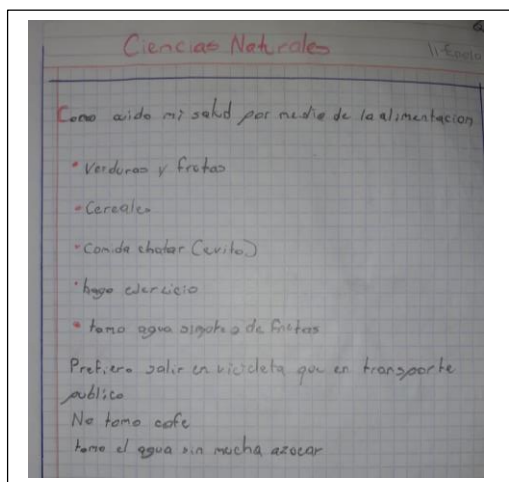 Ciencias Naturales
11-Enero
Como cuido mi salud por medio de la alimentacion
• Verduras y frutas
• Cereales
• Comida chatar (evito)
• hago ejercicio
• tomo agua simple o de frutas
Prefiero salir en vicicleta que en transporte
publico
No tomo cafe
tomo el agua sin mucha azocar